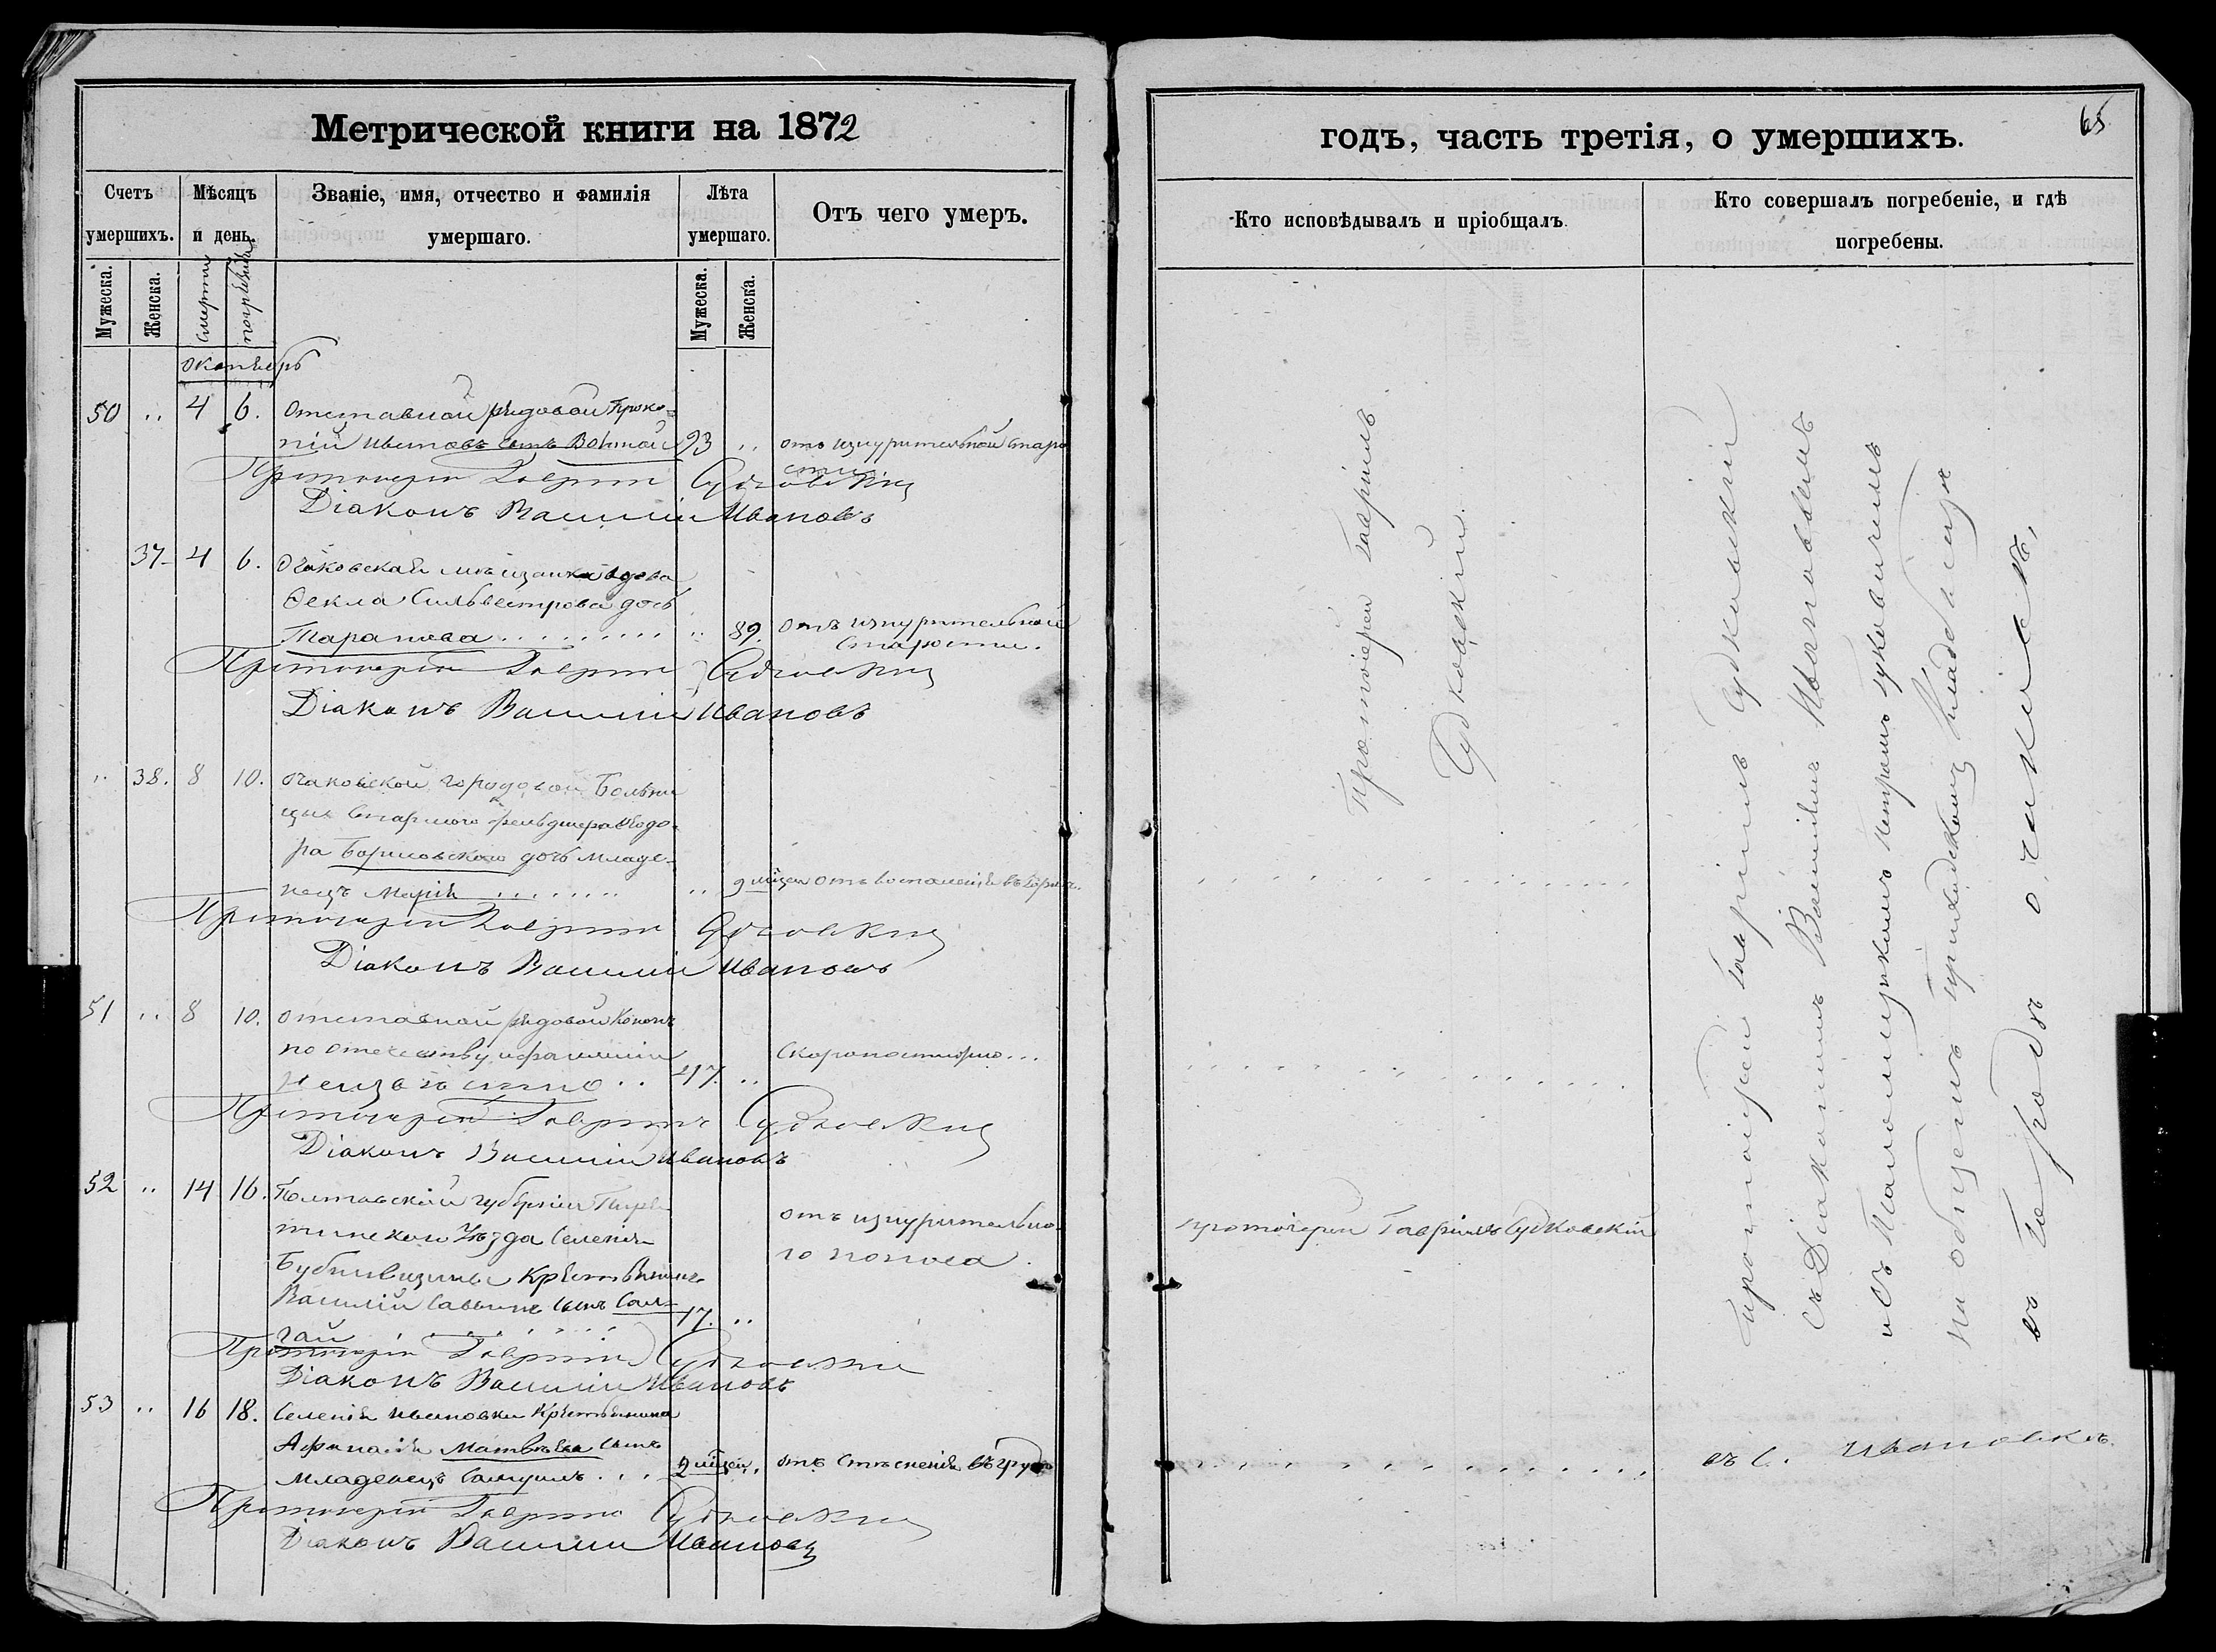 Метрической книги на 1872
Счетъ умершихъ.
Мѣсяцъ и день.
Званіе, имя, отчество и фамилія умершаго.
Лѣта умершаго.
Отъ чего умеръ.
Мужеска.
Женска.
Смерти
погребенія
Мужеска.
Женска.
октябрь
50 .. 4 6. Отставной рядовой Проко-
пій Ивановъ сынъ 93 .. отъ изнурительной старо
сти
Протоіерей Гавріилъ Судковскій
Діаконъ Василій Ивановъ
37 4 6. Очаковская мѣщанка вдова
Фекла Сильвестрова дочь
Таранова .. 89. отъ изнурительной
старости.
Протоіерей Гавріилъ Судковскій
Діаконъ Василій Ивановъ
.. 38. 8 10. очаковской городовой Больни
цы старшого фельдшера Ѳодо-
ра Борисовского дочь младе-
нецъ Марія .. 9 мѣсяц отъ воспаленія въ
Протоіерей Гавріилъ Судковскій
Діаконъ Василій Ивановъ
51 .. 8 10. отставной рядовой Кононъ
по отечеству и фамиліи
неизвѣстно .. 47. .. Скоропостижно...
Протоіерей Гавріилъ Судковскій
Діаконъ Василій Ивановъ
52 .. 14 16. Полтавской губерніи Пиря-
тинскои Уѣзда Селенія
отъ изнурительно-
го поноса.
Крестьянинъ
Василій Саввинъ сынъ 17. ..
Протоіерей Гавріилъ Судковскій
Діаконъ Василій Ивановъ
53 .. 16 18. Селенія Ивановки Крестьянина
Афанасія Матвѣева сынъ
Младенецъ Самуилъ ... 2 мѣсяц .. отъ Стѣсненія въ груди
Протоіерей Гавріилъ Судковскій
Діаконъ Василій Ивановъ
годъ, часть третія, о умершихъ.
65
Кто исповѣдывалъ и пріобщалъ
Кто совершалъ погребеніе, и гдѣ погребены.
Протоіерей Гавріилъ
Судковскій.
протоіерей Гавріилъ Судковскій
протоіерей Гавріилъ Судковскій
съ Діакономъ Василіемъ Ивановымъ
и съ Паломщикомъ Петромъ Луковичемъ
на общемъ приходскомъ кладбищѣ
въ городѣ Очаковѣ,
въ с. Ивановкѣ.